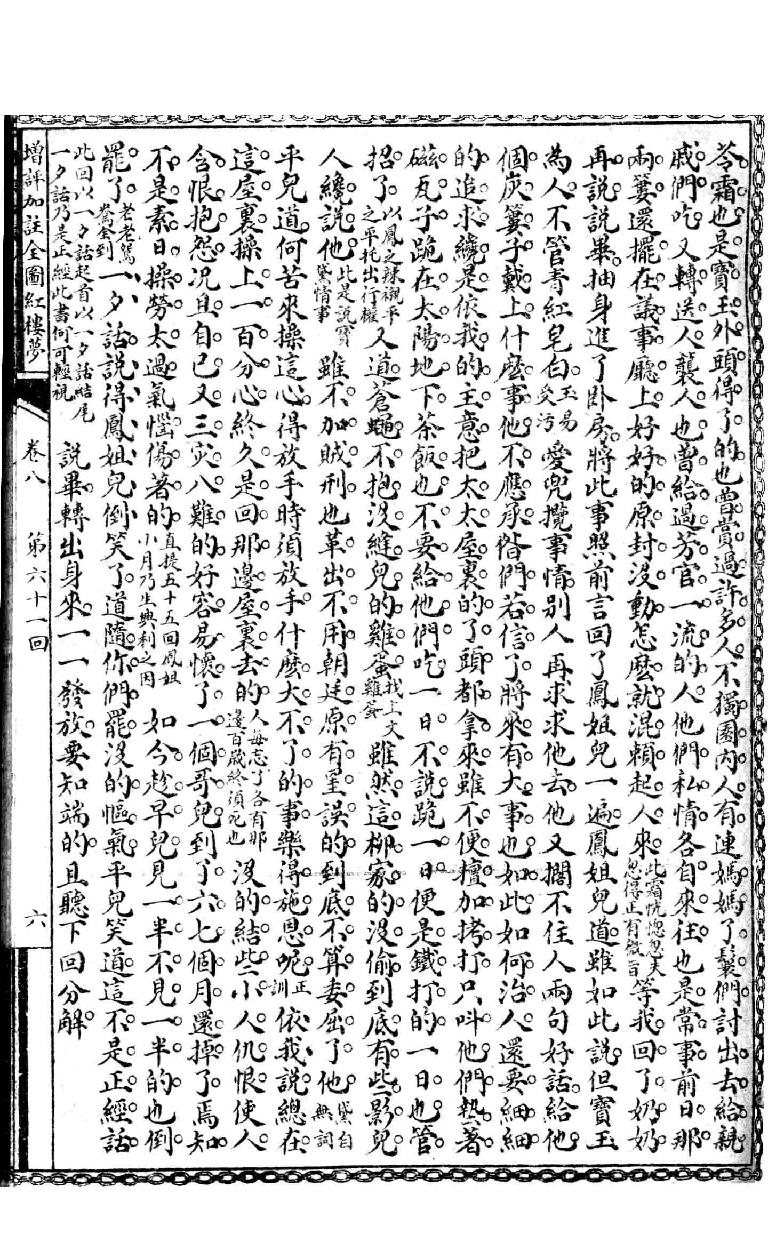 苓霜也是寶玉外頭得了的也曾賞過許多人不獨園內人有連媽媽了鬟們討出去給親
戚們吃又轉送人襲人也曾給過芳官一流的人他們私情各自來往也是常事前日那
兩簍還擺在議事廳上好好的原封沒動怎麽就混賴起人來此霜恍惚忽失忽得正有微旨等我回了奶奶
再說說畢抽身進了卧房將此事照前言回了鳳姐兒一遍鳳姐兒道雖如此說但寶玉
為人不管青紅皂白玉易受污愛兜攬事情别人再求求他去他又擱不住人兩句好話給他
個炭簍子戴上什麽事他不應承偺們若信了將來有大事也如此如何治人還要細細
的追求纔是依我的主意把太太屋裏的了頭都拿來雖不便擅加拷打只呌他們墊著
磁瓦子跪在太陽地下茶飯也不要給他們吃一日不說跪一日便是鐵打的一日也管
招了以鳳之辣襯平之平托出行權又道蒼蠅不抱沒縫兒的雞蛋找上文雞蛋雖然這柳家的沒偷到底有些影兒
人纔說他此是說寶黛情事雖不加賊刑也革出不用朝廷原有罣誤的到底不算委屈了他黛自無詞
平兒道何苦來操這心得放手時須放手什麽大不了的事樂得施恩呢正訓依我說總在
這屋裏操上一百分心終久是回那邊屋裏去的人毎忘了各有那邊百歲終須死也沒的結些小人仇恨使人
含恨抱怨况且自已又三灾八難的好容易懷了一個哥兒到了六七個月還掉了焉知
不是素日操勞太過氣惱傷著的直提五十五回鳳姐小月乃生興利之因如今趁早兒見一半不見一半的也倒
罷了老老駡鴦至到一夕話說得鳳姐兒倒笑了道隨你們罷沒的慪氣平兒笑道這不是正經話
此回以一夕話起首以一夕話結尾一夕話乃是正經此書何可輕視說畢轉出身來一一發放要知端的且聽下回分解
增評加註全圖紅樓夢
卷八
第六十一回
六